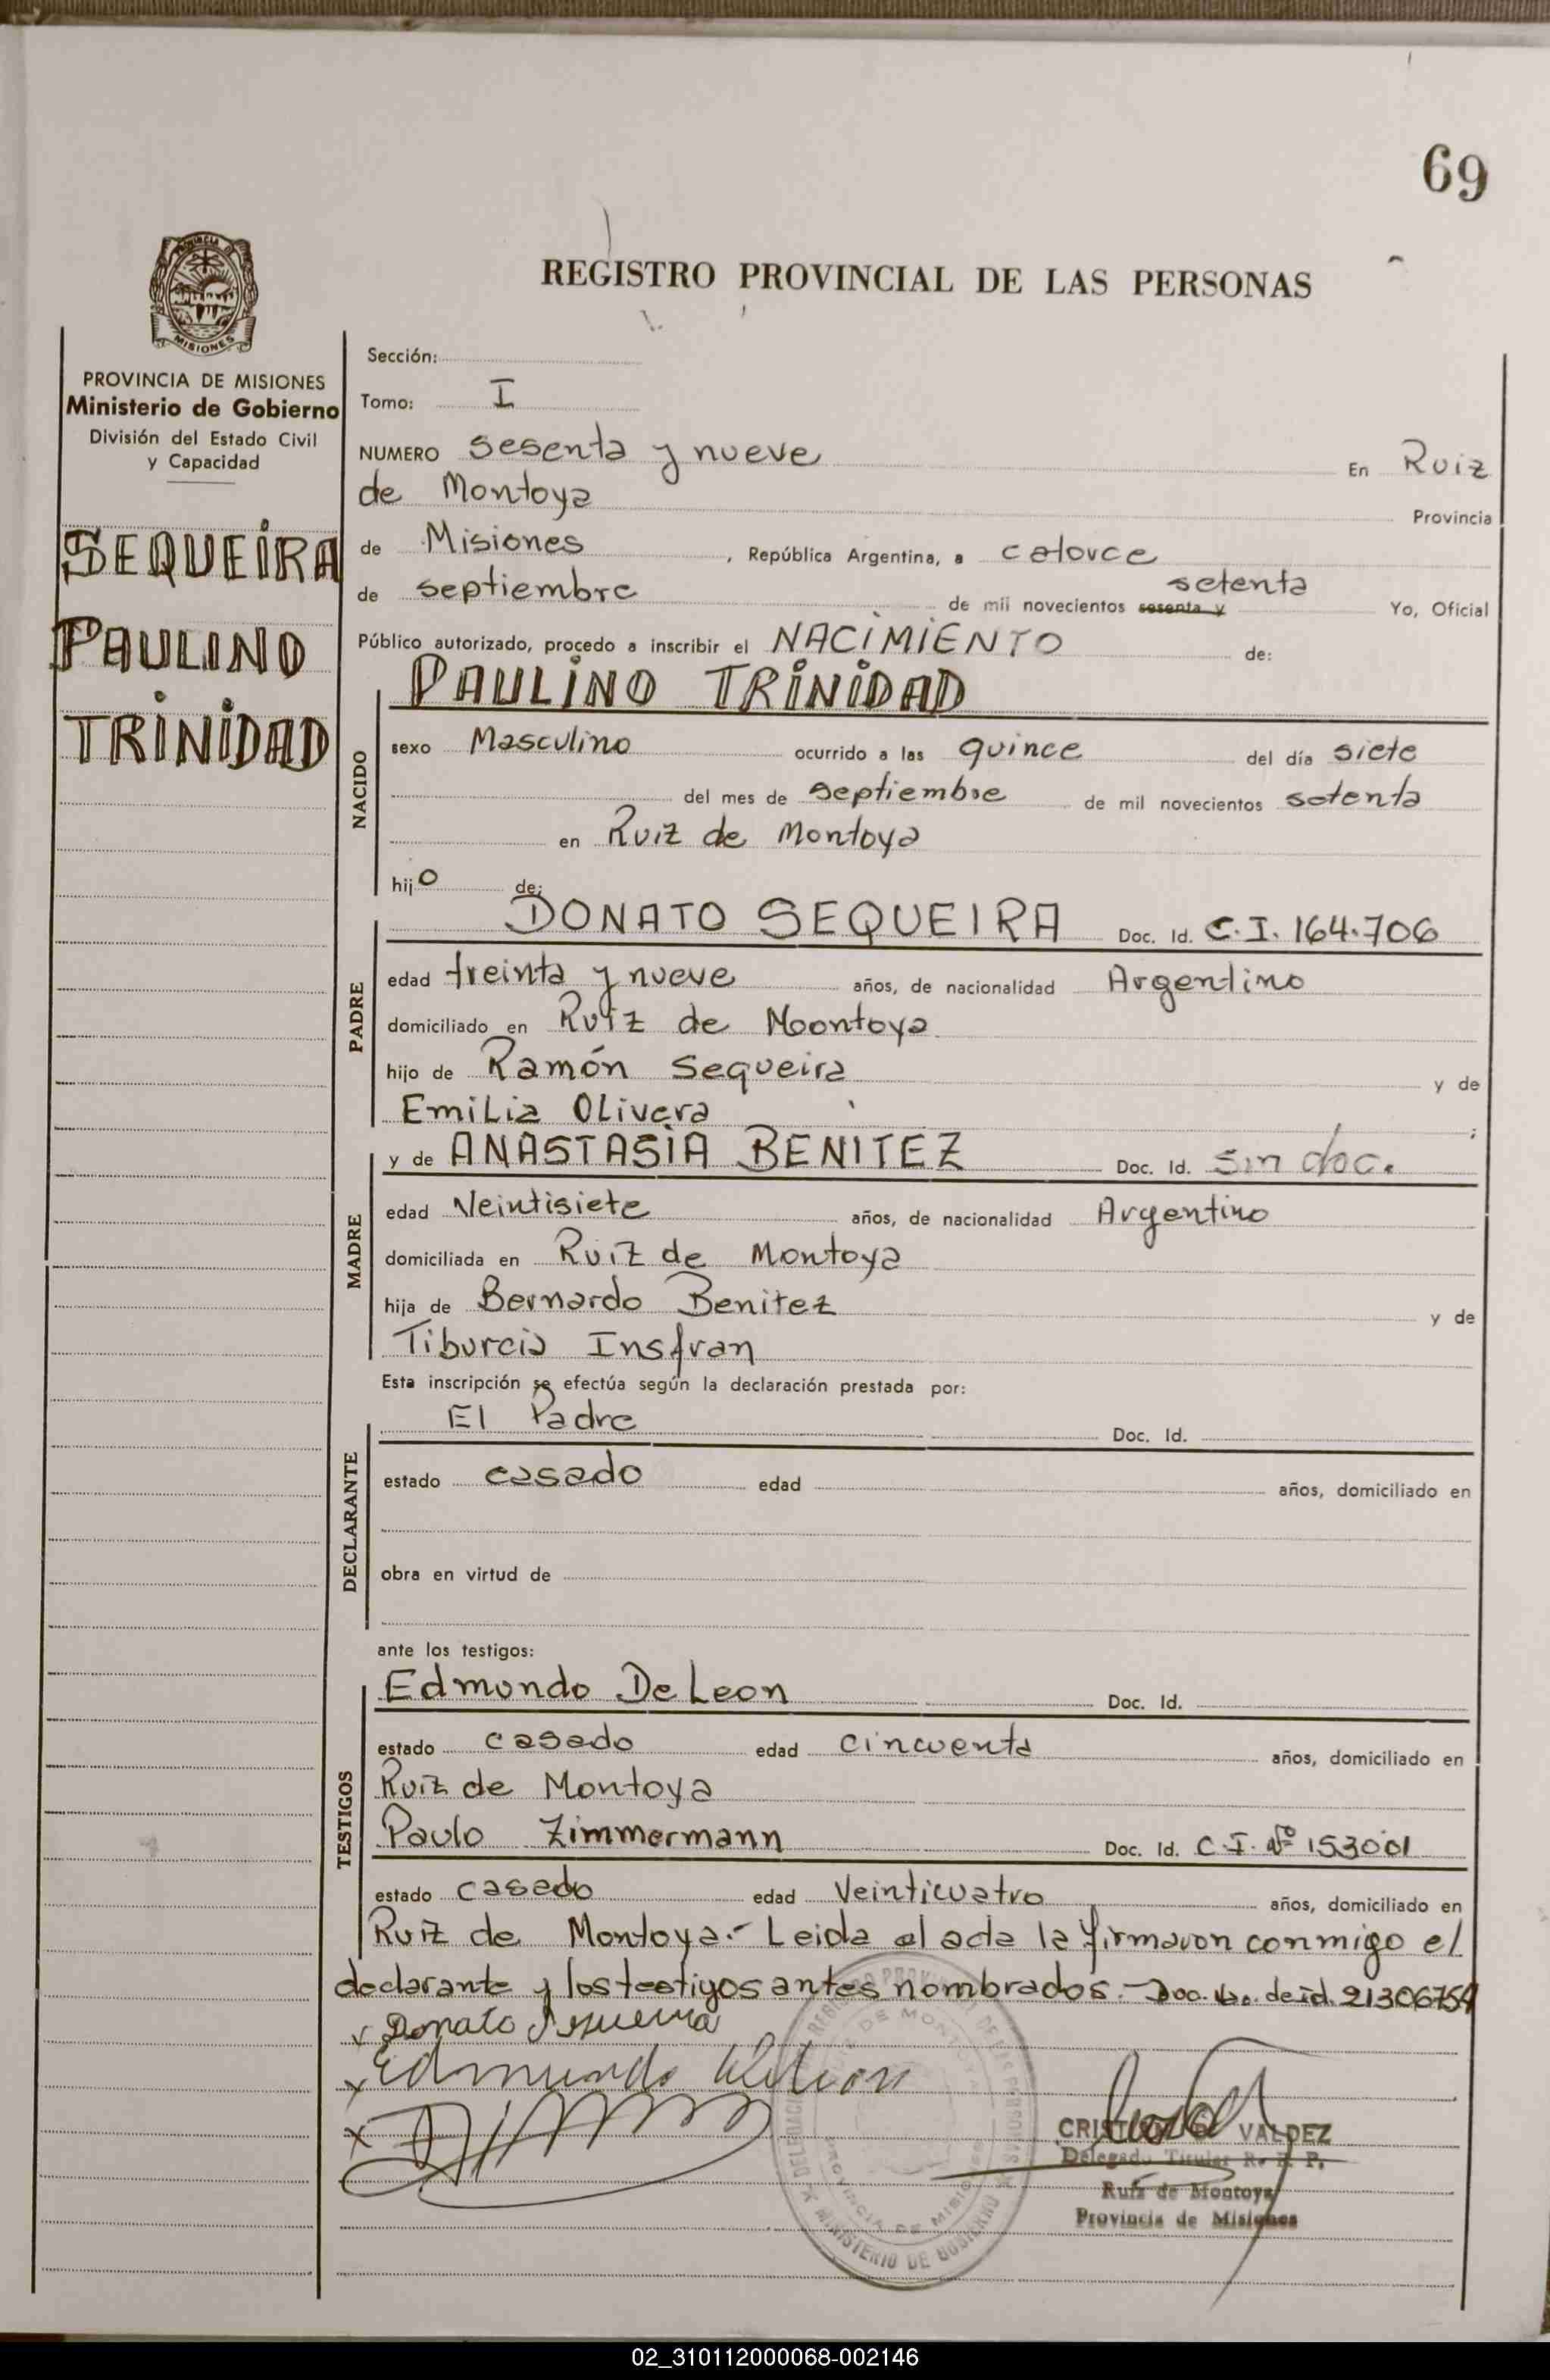 69
REGISTRO PROVINCIAL DE LAS PERSONAS
PROVINCIA DE
MISIONES
PROVINCIA DE MISIONES
Ministerio de Gobierno
División del Estado Civil
y Capacidad
SEQUEIRA
PAULINO
TRINIDAD
Sección:
Tomo: I
NUMERO sesenta y nueve En Ruiz
de Montoya Provincia
de Misiones, República Argentina, a catorce
de septiembre de mil novecientos sesenta y setenta Yo, Oficial
Público autorizado, procedo a inscribir el NACIMIENTO de:
NACIDO
PAULINO TRINIDAD
sexo Masculino ocurrido a las quince del día siete
del mes de septiembre de mil novecientos setenta
en Ruiz de Montoya
hijo de:
PADRE
DONATO SEQUEIRA Doc. Id. C.I. 164.706
edad treinta y nueve años, de nacionalidad Argentino
domiciliado en Ruiz de Moontoya
hijo de Ramón Sequeira y de
Emilia Olivera ;
MADRE
y de ANASTASIA BENITEZ Doc. Id. sin doc.
edad Veintisiete años, de nacionalidad Argentino
domiciliada en Ruiz de Montoya
hija de Bernardo Benitez y de
Tiburcia Insfran
Esta inscripción se efectúa según la declaración prestada por:
DECLARANTE
El Padre Doc. Id.
estado casado edad años, domiciliado en
obra en virtud de
ante los testigos:
TESTIGOS
Edmundo De Leon Doc. Id.
estado casado edad cincuenta años, domiciliado en
Ruiz de Montoya
Paulo Zimmermann Doc. Id. C.I. Nº 153001
estado casado edad Veinticuatro años, domiciliado en
Ruiz de Montoya.- Leida el acta la firmaron conmigo el
declarante y los testigos antes nombrados.- Doc. de id. 21306754
x Donato Sequeira
x Edmundo
x
DELEGACION REGISTRO PROVINCIAL DE LAS PERSONAS
MINISTERIO DE GOBIERNO
RUIZ DE MONTOYA
PROVINCIA DE MISIONES
VALDEZ
Delegado Titular R. P. P.
Ruiz de Montoya
Provincia de Misiones
02_310112000068-002146